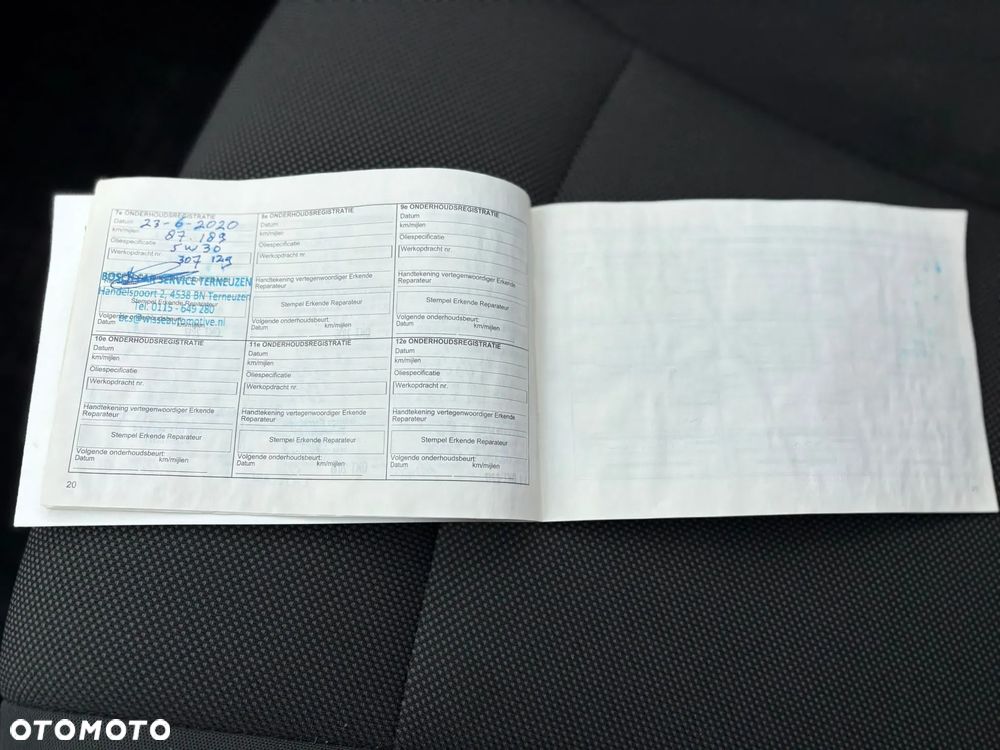 7e ONDERHOUDSREGISTRATIE
Datum 23-6-2020
km/mijlen 87.183
Oliespecificatie 5W30
Werkopdracht nr. 307 129
BOSCH CAR SERVICE TERNEUZEN
Handelspoort 2, 4538 BN Terneuzen
Stempel Erkende Reparateur
Tel. 0115 - 649 280
Volgende onderhoudsbeurt:
bcs@wisseautomotive.nl
Datum km/mijlen
8e ONDERHOUDSREGISTRATIE
Datum
km/mijlen
Oliespecificatie
Werkopdracht nr.
Handtekening vertegenwoordiger Erkende
Reparateur
Stempel Erkende Reparateur
Volgende onderhoudsbeurt:
Datum km/mijlen
9e ONDERHOUDSREGISTRATIE
Datum
km/mijlen
Oliespecificatie
Werkopdracht nr.
Handtekening vertegenwoordiger Erkende
Reparateur
Stempel Erkende Reparateur
Volgende onderhoudsbeurt:
Datum km/mijlen
10e ONDERHOUDSREGISTRATIE
Datum
km/mijlen
Oliespecificatie
Werkopdracht nr.
Handtekening vertegenwoordiger Erkende
Reparateur
Stempel Erkende Reparateur
Volgende onderhoudsbeurt:
Datum km/mijlen
11e ONDERHOUDSREGISTRATIE
Datum
km/mijlen
Oliespecificatie
Werkopdracht nr.
Handtekening vertegenwoordiger Erkende
Reparateur
Stempel Erkende Reparateur
Volgende onderhoudsbeurt:
Datum km/mijlen
12e ONDERHOUDSREGISTRATIE
Datum
km/mijlen
Oliespecificatie
Werkopdracht nr.
Handtekening vertegenwoordiger Erkende
Reparateur
Stempel Erkende Reparateur
Volgende onderhoudsbeurt:
Datum km/mijlen
20
OTOMOTO